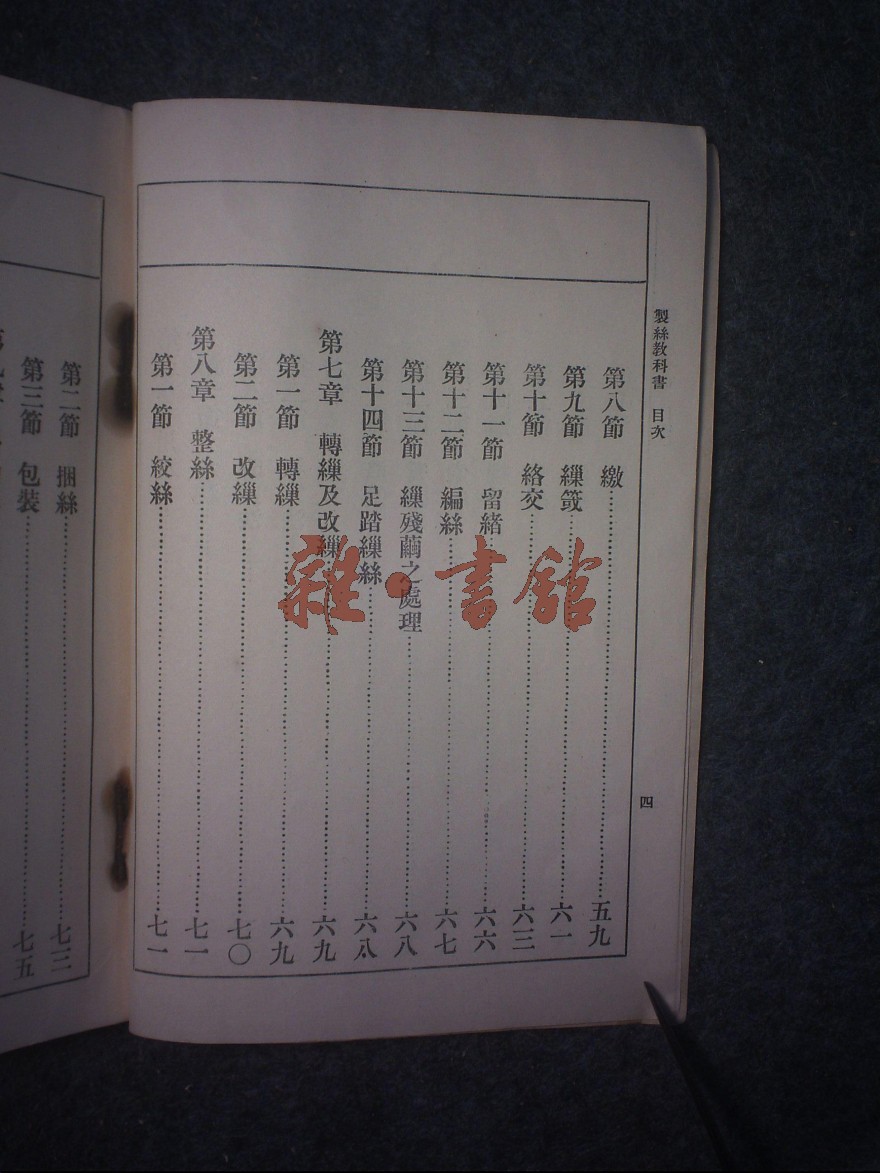 製絲教科書 目次
四
第八節 繳……五九
第九節 繅筬……六一
第十節 絡交……六三
第十一節 留緒……六六
第十二節 編絲……六七
第十三節 繅殘繭之處理……六八
第十四節 足踏繅絲……六八
第七章 轉繅及改繅……六九
第一節 轉繅……六九
第二節 改繅……七〇
第八章 整絲……七一
第一節 絞絲……七一
第二節 捆絲……七三
第三節 包裝……七五
雜·書館